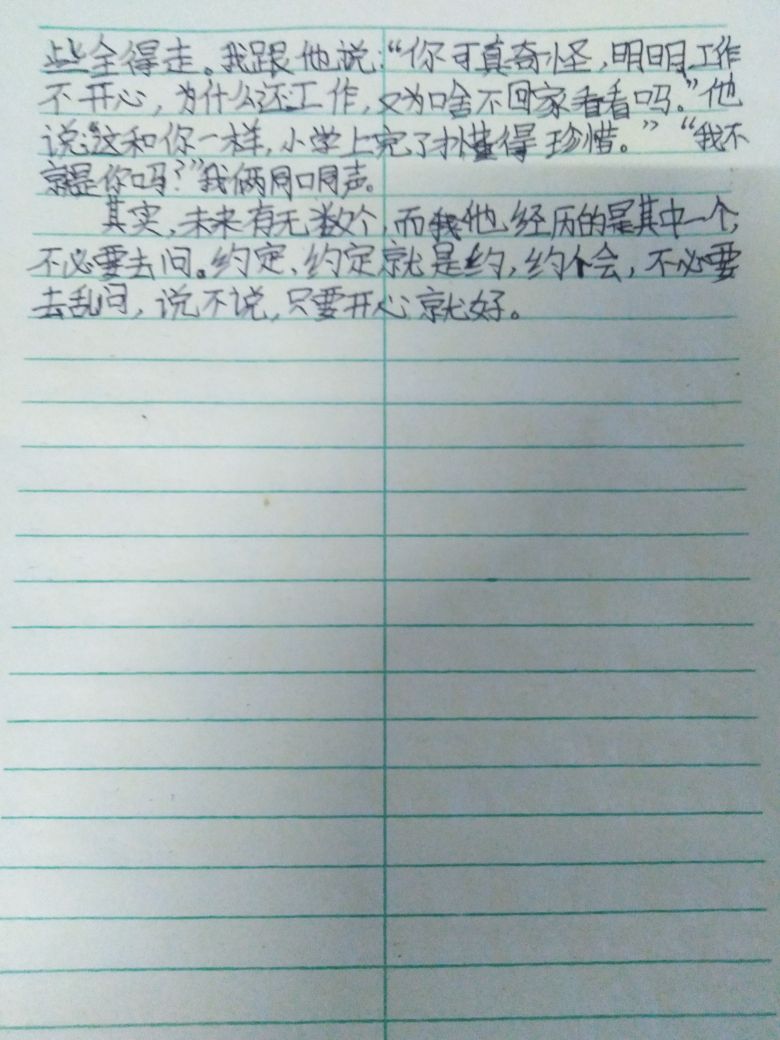 些全得走。我跟他说：“你可真奇怪，明明工作
不开心，为什么还工作，又为啥不回家看看吗。”他
说：“这和你一样，小学上完了才懂得珍惜。”“我不
就是你吗？”我俩同口同声。
其实，未来有无数个，而他经历的是其中一个，
不必要去问。约定、约定就是约，约个会，不必要
去乱问，说不说，只要开心就好。